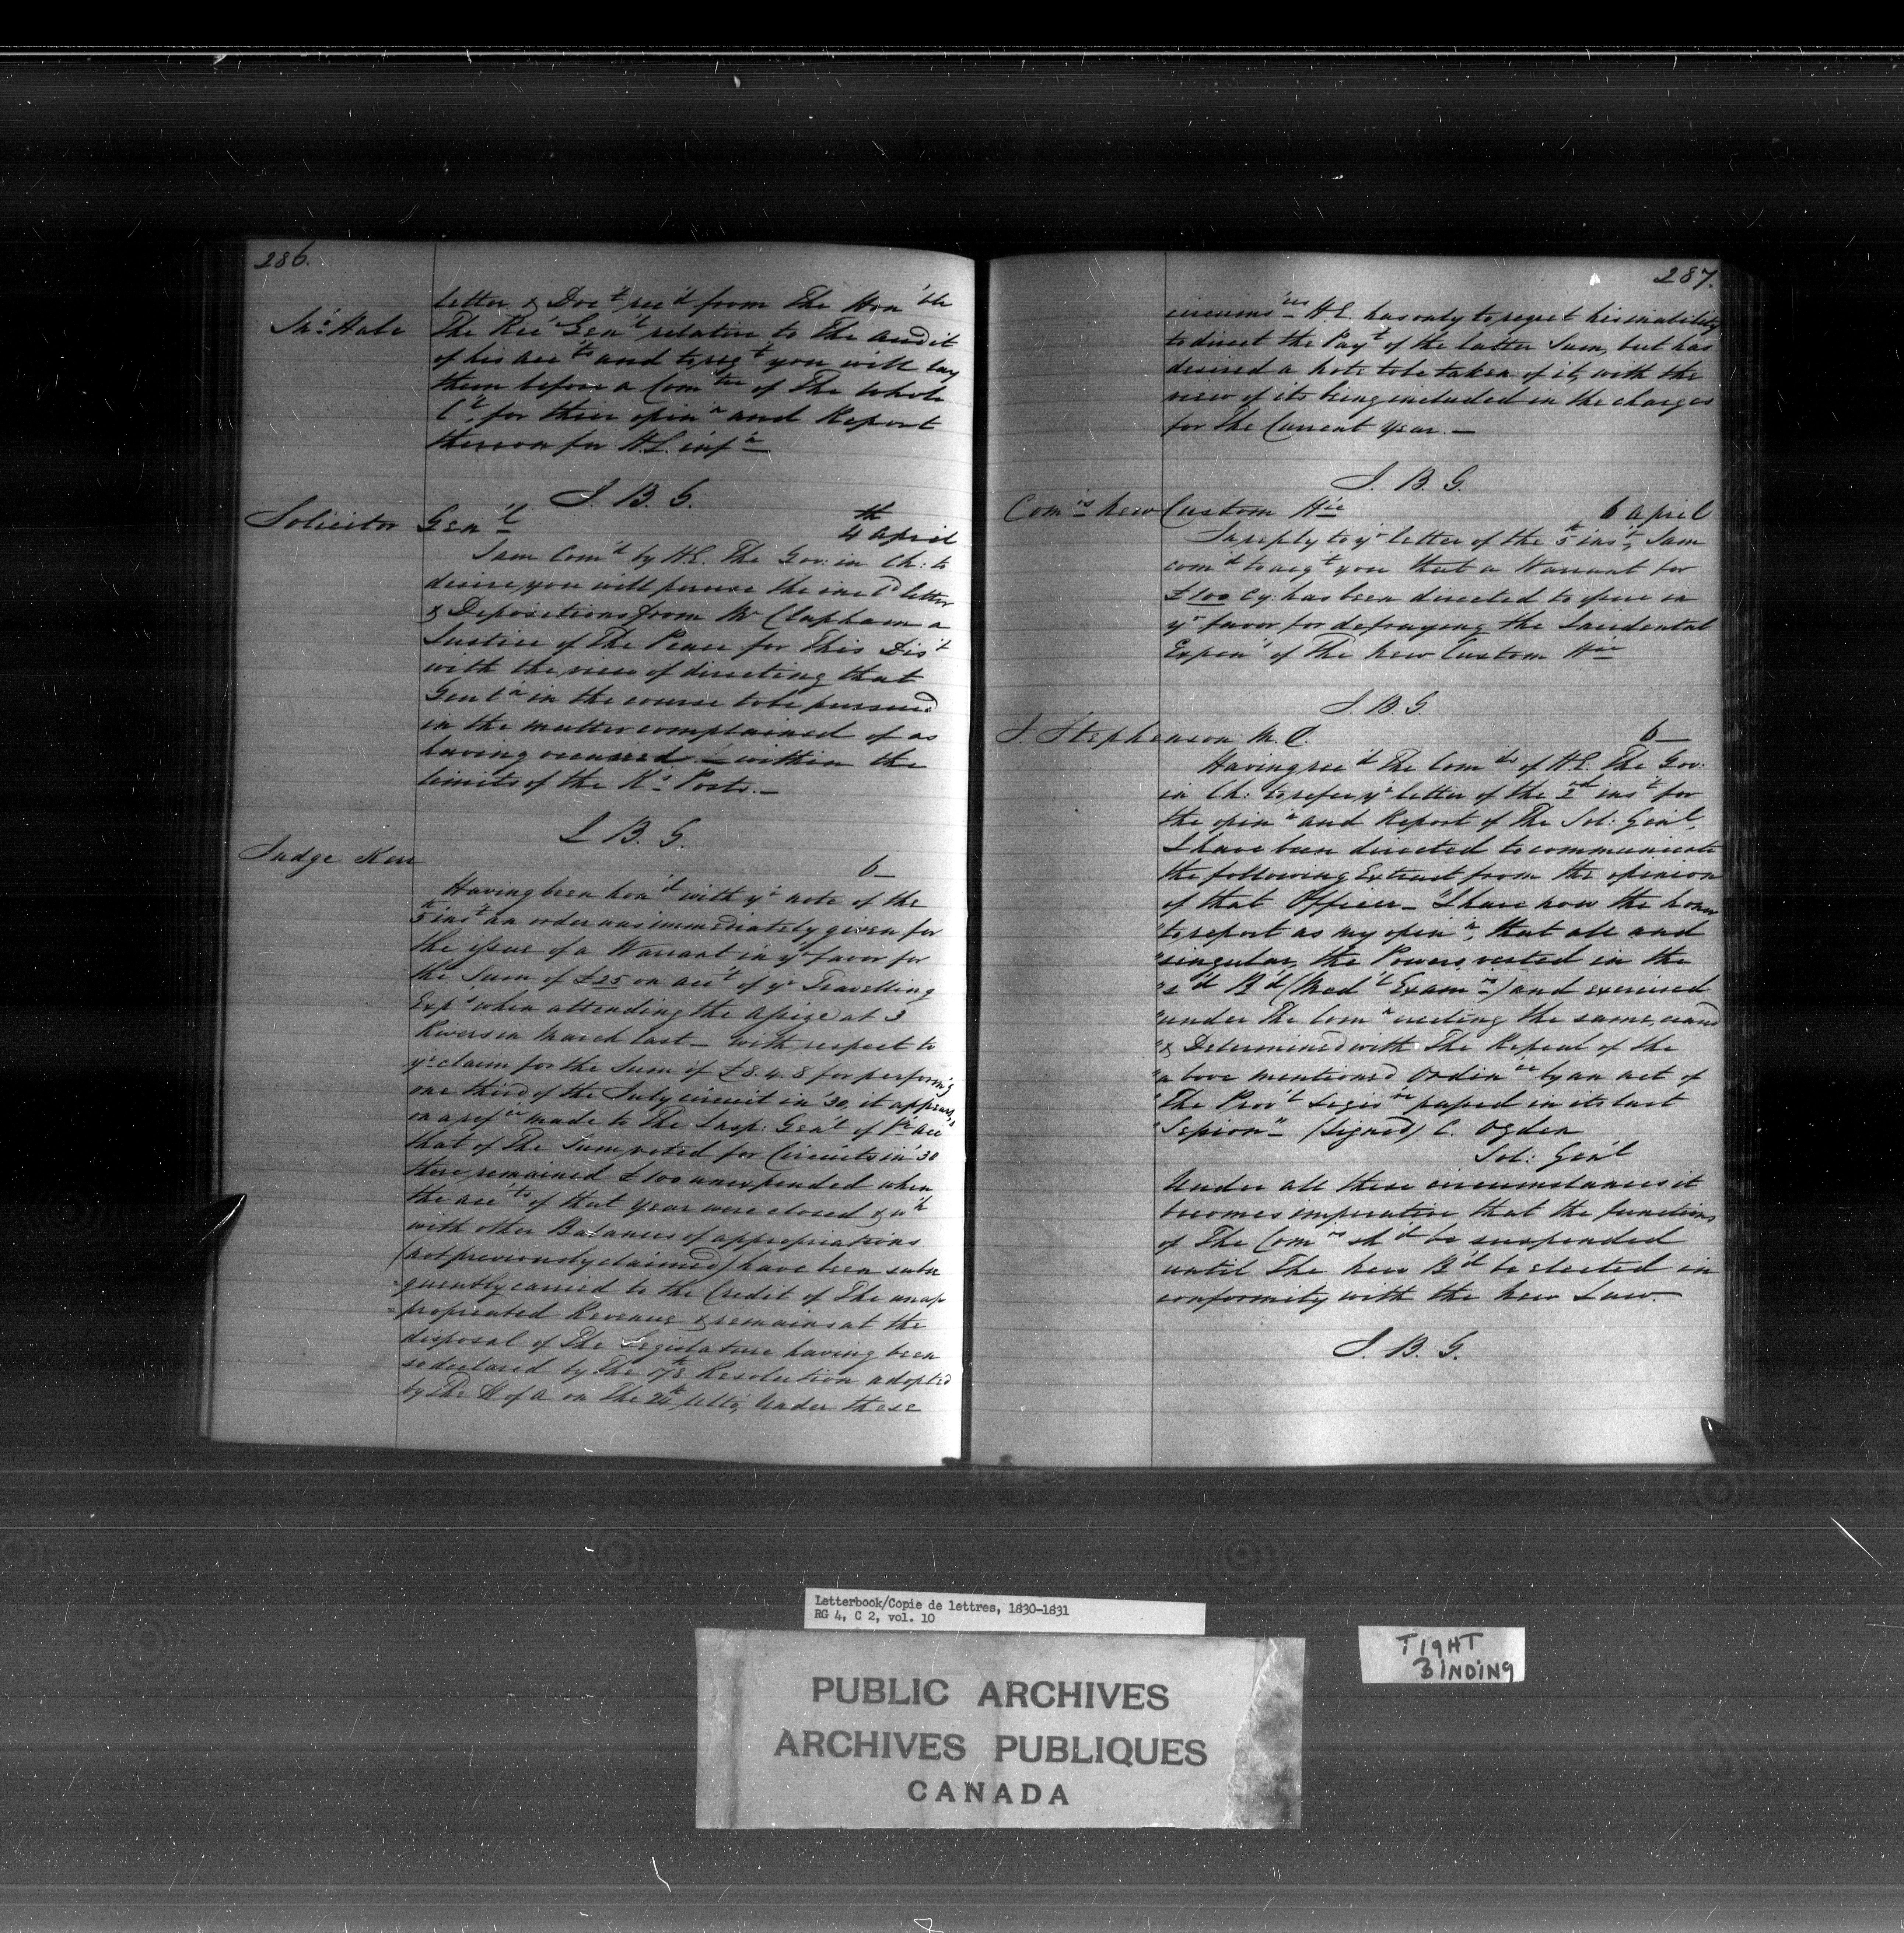 286.
letter & Doc't rec'd from The Hon'ble
Jno Hale The Rec' Gen'l relative to The audit
of his acc'ts and to reqt you will lay
them before a Com'tee of The Whole
C'l for their opin'n and Report
thereon for H.E. inf'n
J. B. G.
Solicitor Gen'l 4th April
I am Com'd by H.E. The Gov: in Ch: to
desire, you will peruse the incl'd letter
& Depositions from Mr Clapham a
Justice of The Peace for This Dis't
with the view of directing that
Gentn in the course to be pursued
in the matter complained of as
having occurred within the
limits of the K's Posts.
J. B. G.
Judge Kerr 6
Having been hon'd with yr note of the
5th inst an order was immediately given for
the issue of a Warrant in yr favor for
the Sum of £25 on acc't of yr Travelling
Exp's when attending the assize at 3
Rivers in March last — With respect to
yr claim for the Sum of £8.4.8 for perform'g
one third of the July circuit in '30, it appears,
in a ref'ce made to The Insp: Gen'l of acc
that of The Sum voted for Circuits in '30
there remained £100 unexpended when
the acc'ts of that year were closed & wh
with other Balances of appropriations
(not previously claimed) have been subse
=quently carried to the Credit of The unap
=propriated Revenue & remains at the
disposal of The Legislature having been
so declared by The Resolution adopted
by The H of A on The 24th ulto, Under these
287.
circums'ces H.E. has only to regret his inability
to direct the Payt of the latter Sum, but has
desired a note to be taken of it, with the
view of its being included in the charges
for The Current Year. —
J. B. G.
Com'rs New Custom H'se 6 April
In reply to yr letter of the 5th inst, I am
com'd to acqt you that a Warrant for
£100 Cy. has been directed to issue in
yr favor for defraying the Incidental
Expen' of The New Custom H'se
J. B. G.
J. Stephenson M.C. 6
Having rec'd The Com'ds of H.E. The Gov:
in Ch: to refer yr letter of the 2nd inst for
the opin'n and Report of The Sol: Genl,
I have been directed to communicate
the following Extract from the opinion
of that Officer — "I have now the honor
"to report as my opin'n, that all and
"singular, the Powers vested in the
"s'd B'd (Med'l Exam'rs) and exercised
"under The Com'n creating the same, ceased
"& Determined with The Repeal of the
"above mentioned Ordin'ce by an act of
"The Prov'l Legis're passed in its last
"Session" (Signed) C. Ogden
Sol: Gen'l
Under all these circumstances it
becomes imperative that the functions
of The Com'rs sh'd be suspended
until The New B'd be elected in
conformity with the New Law.
J. B. G.
Letterbook/Copie de lettres, 1830-1831
RG 4, C 2, vol. 10
TIGHT
BINDING
PUBLIC ARCHIVES
ARCHIVES PUBLIQUES
CANADA